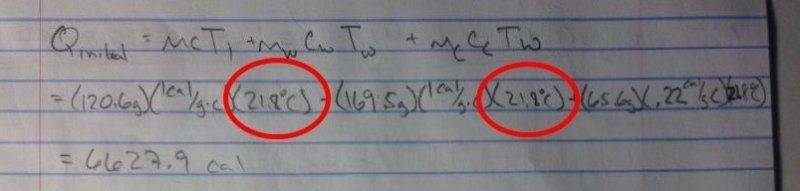 Qinitial = McT1 + mwCwTw + mcCcTw
= (120.6g)(1cal/g·c)(21.8°C) + (169.5g)(1cal/g·c)(21.8°C) + (65.6g)(.22cal/g·C)(21.8°C)
= 6627.9 cal